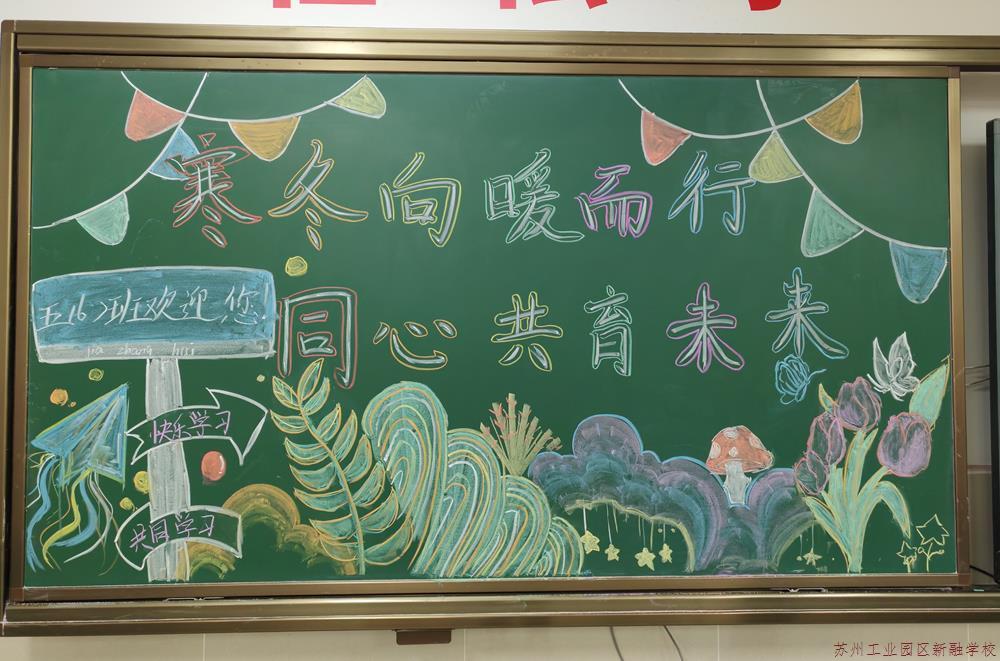 寒冬向暖而行
同心共育未来
五16班欢迎您
jia zhang hui
快乐学习
共同学习
苏州工业园区新融学校